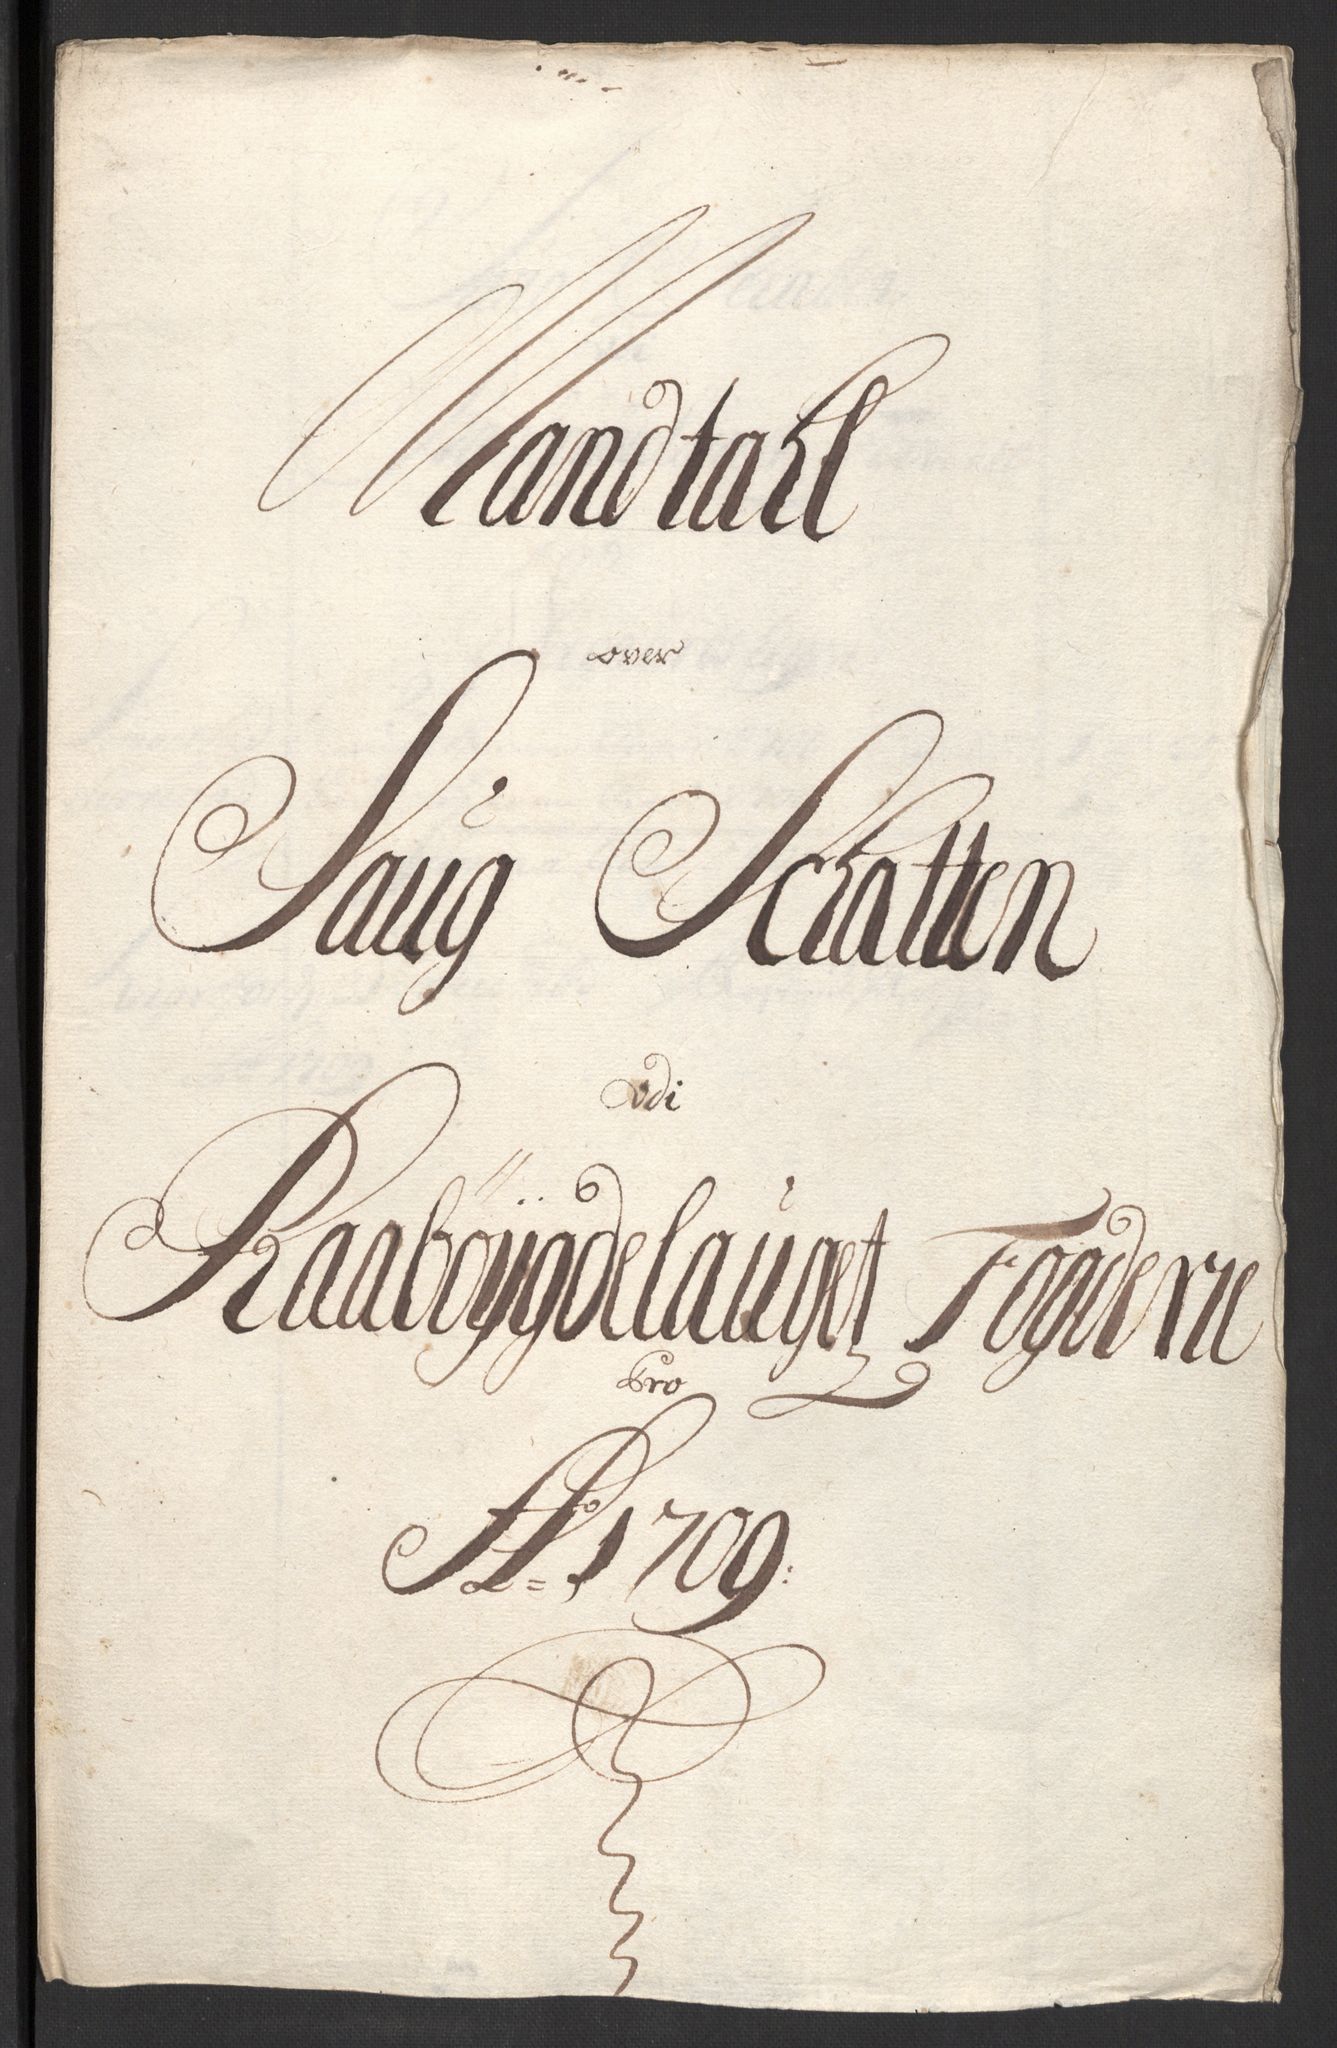 Mandtahl
over
Saug Schatten
udi
Raaböÿgdelauget Fogderie
pro
Ao 1709: